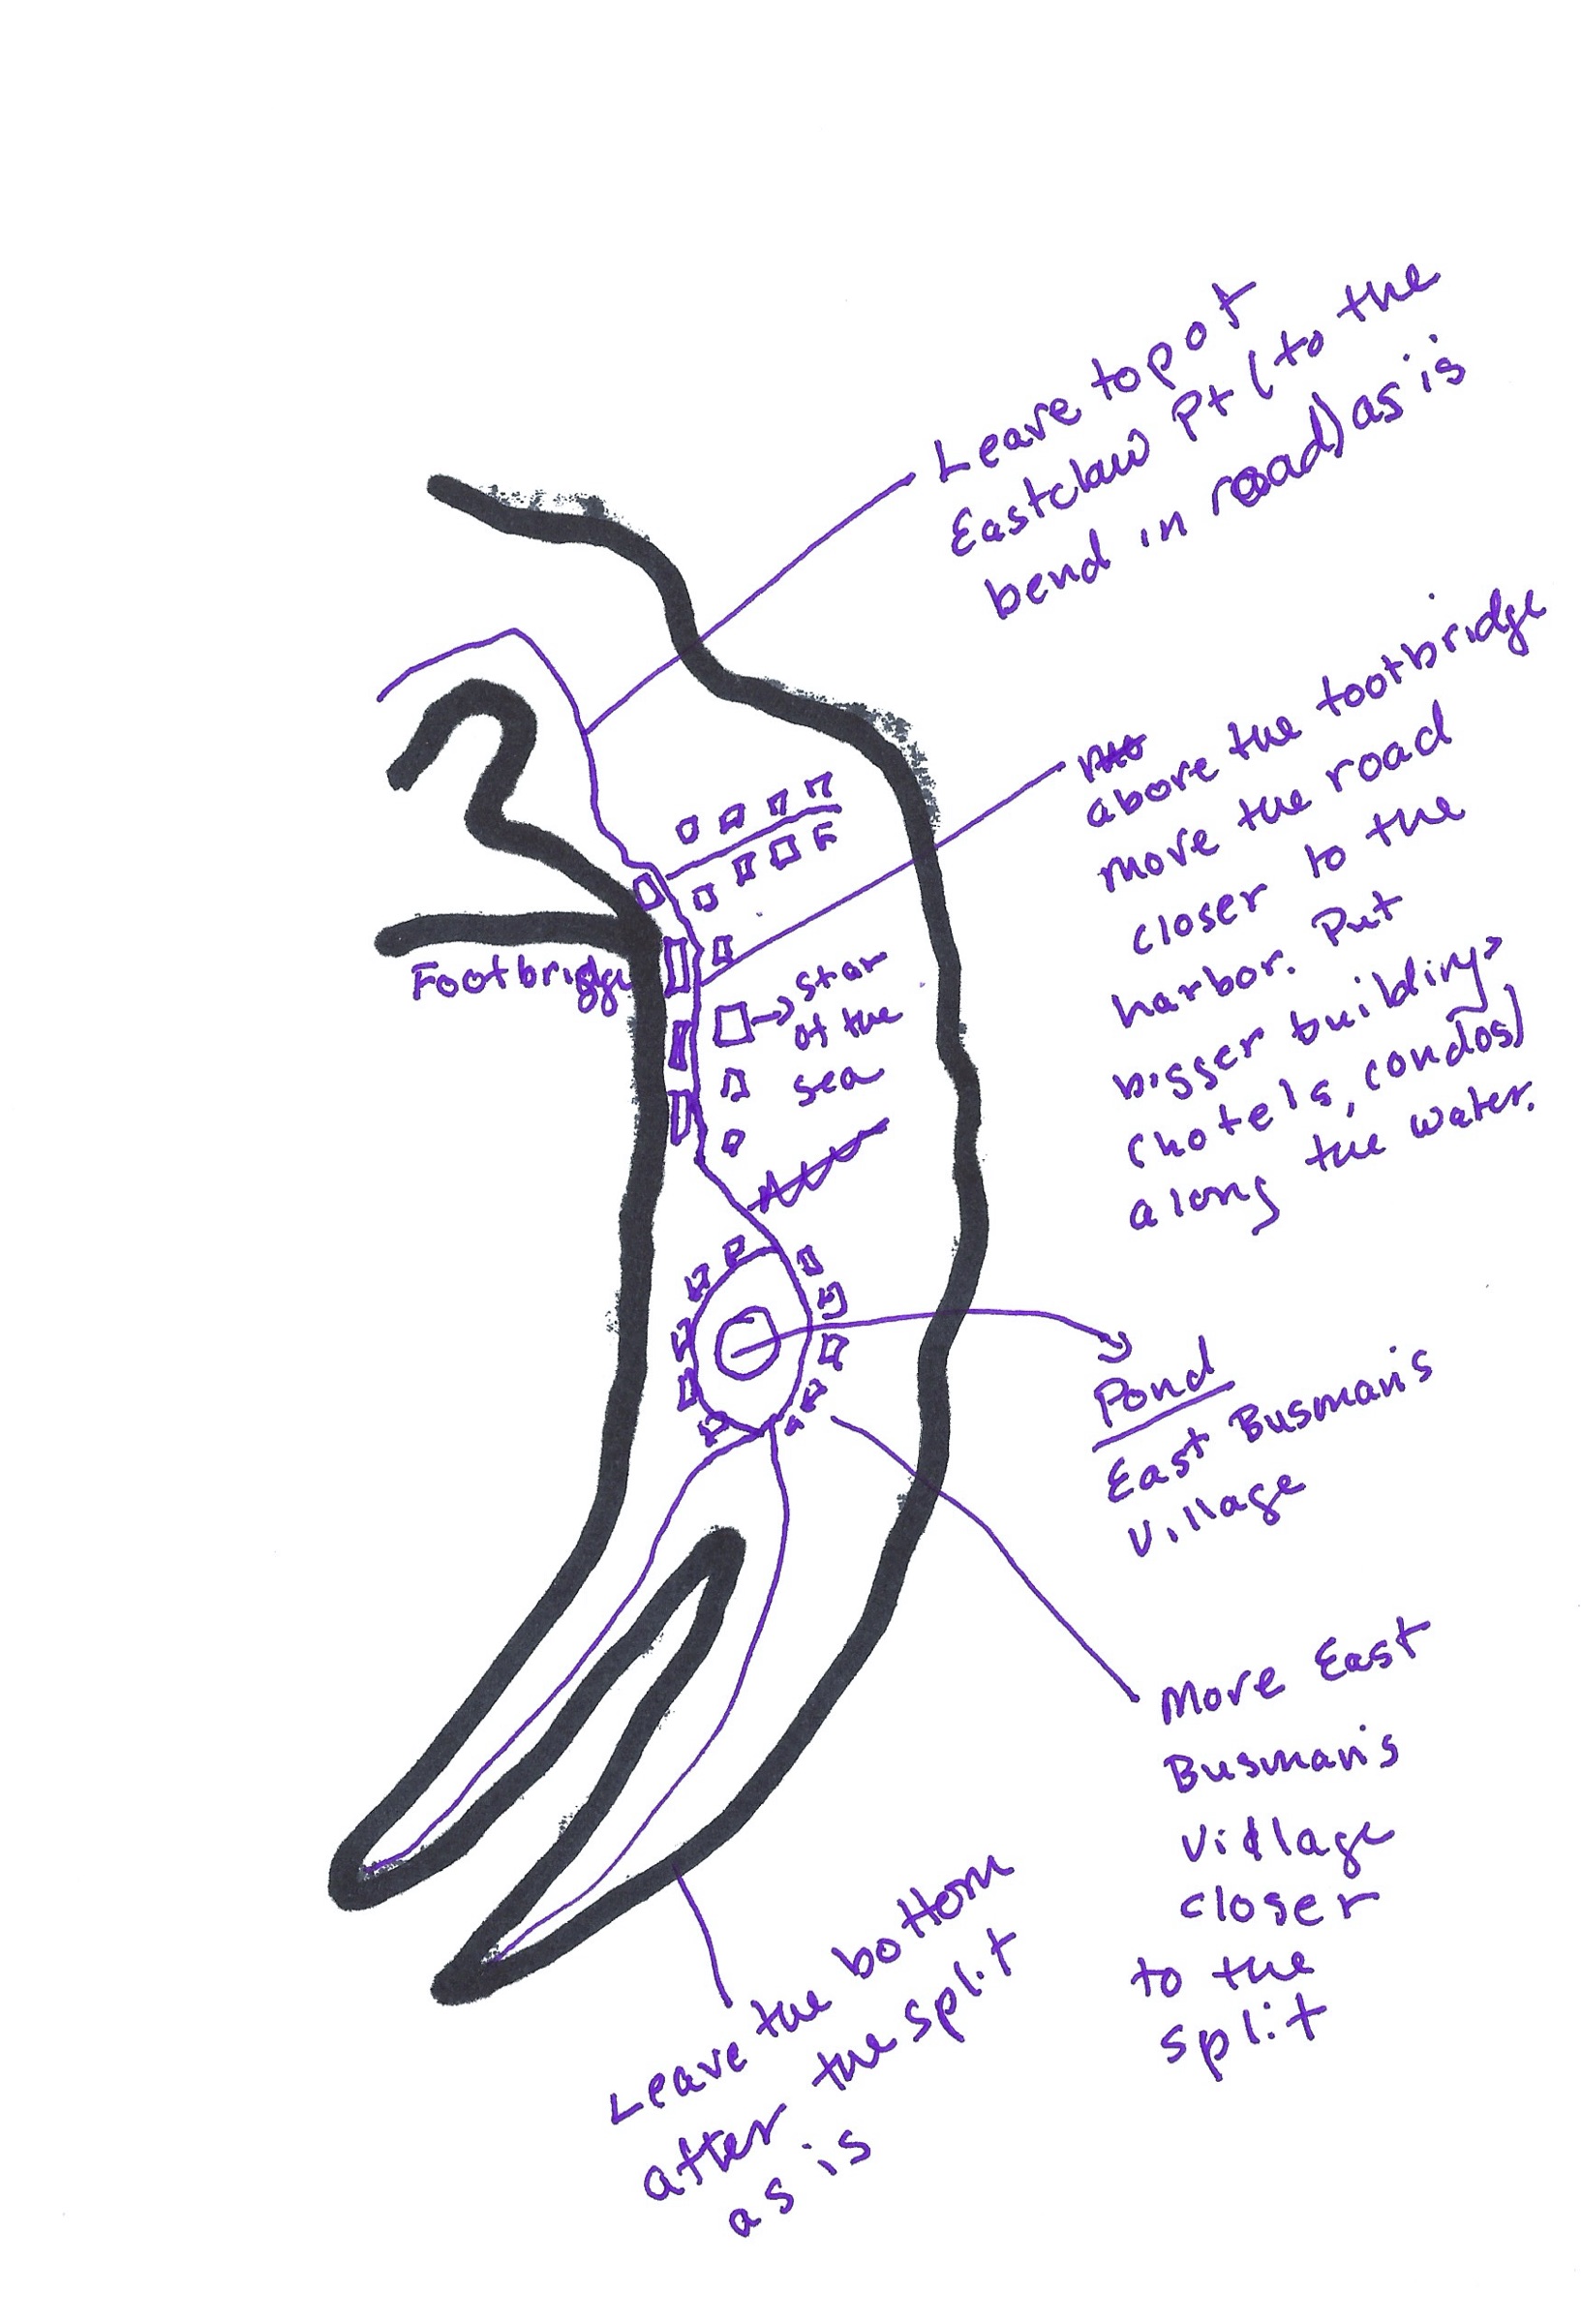 Leave top of
Eastclaw Pt (to the
bend in road) as is
above the footbridge
move the road
closer to the
harbor. Put
bigger buildings
(hotels, condos)
along the water.
Footbridge
Star
of the
sea
Pond
East Busman's
Village
Move East
Busman's
Village
closer
to the
split
Leave the bottom
after the split
as is